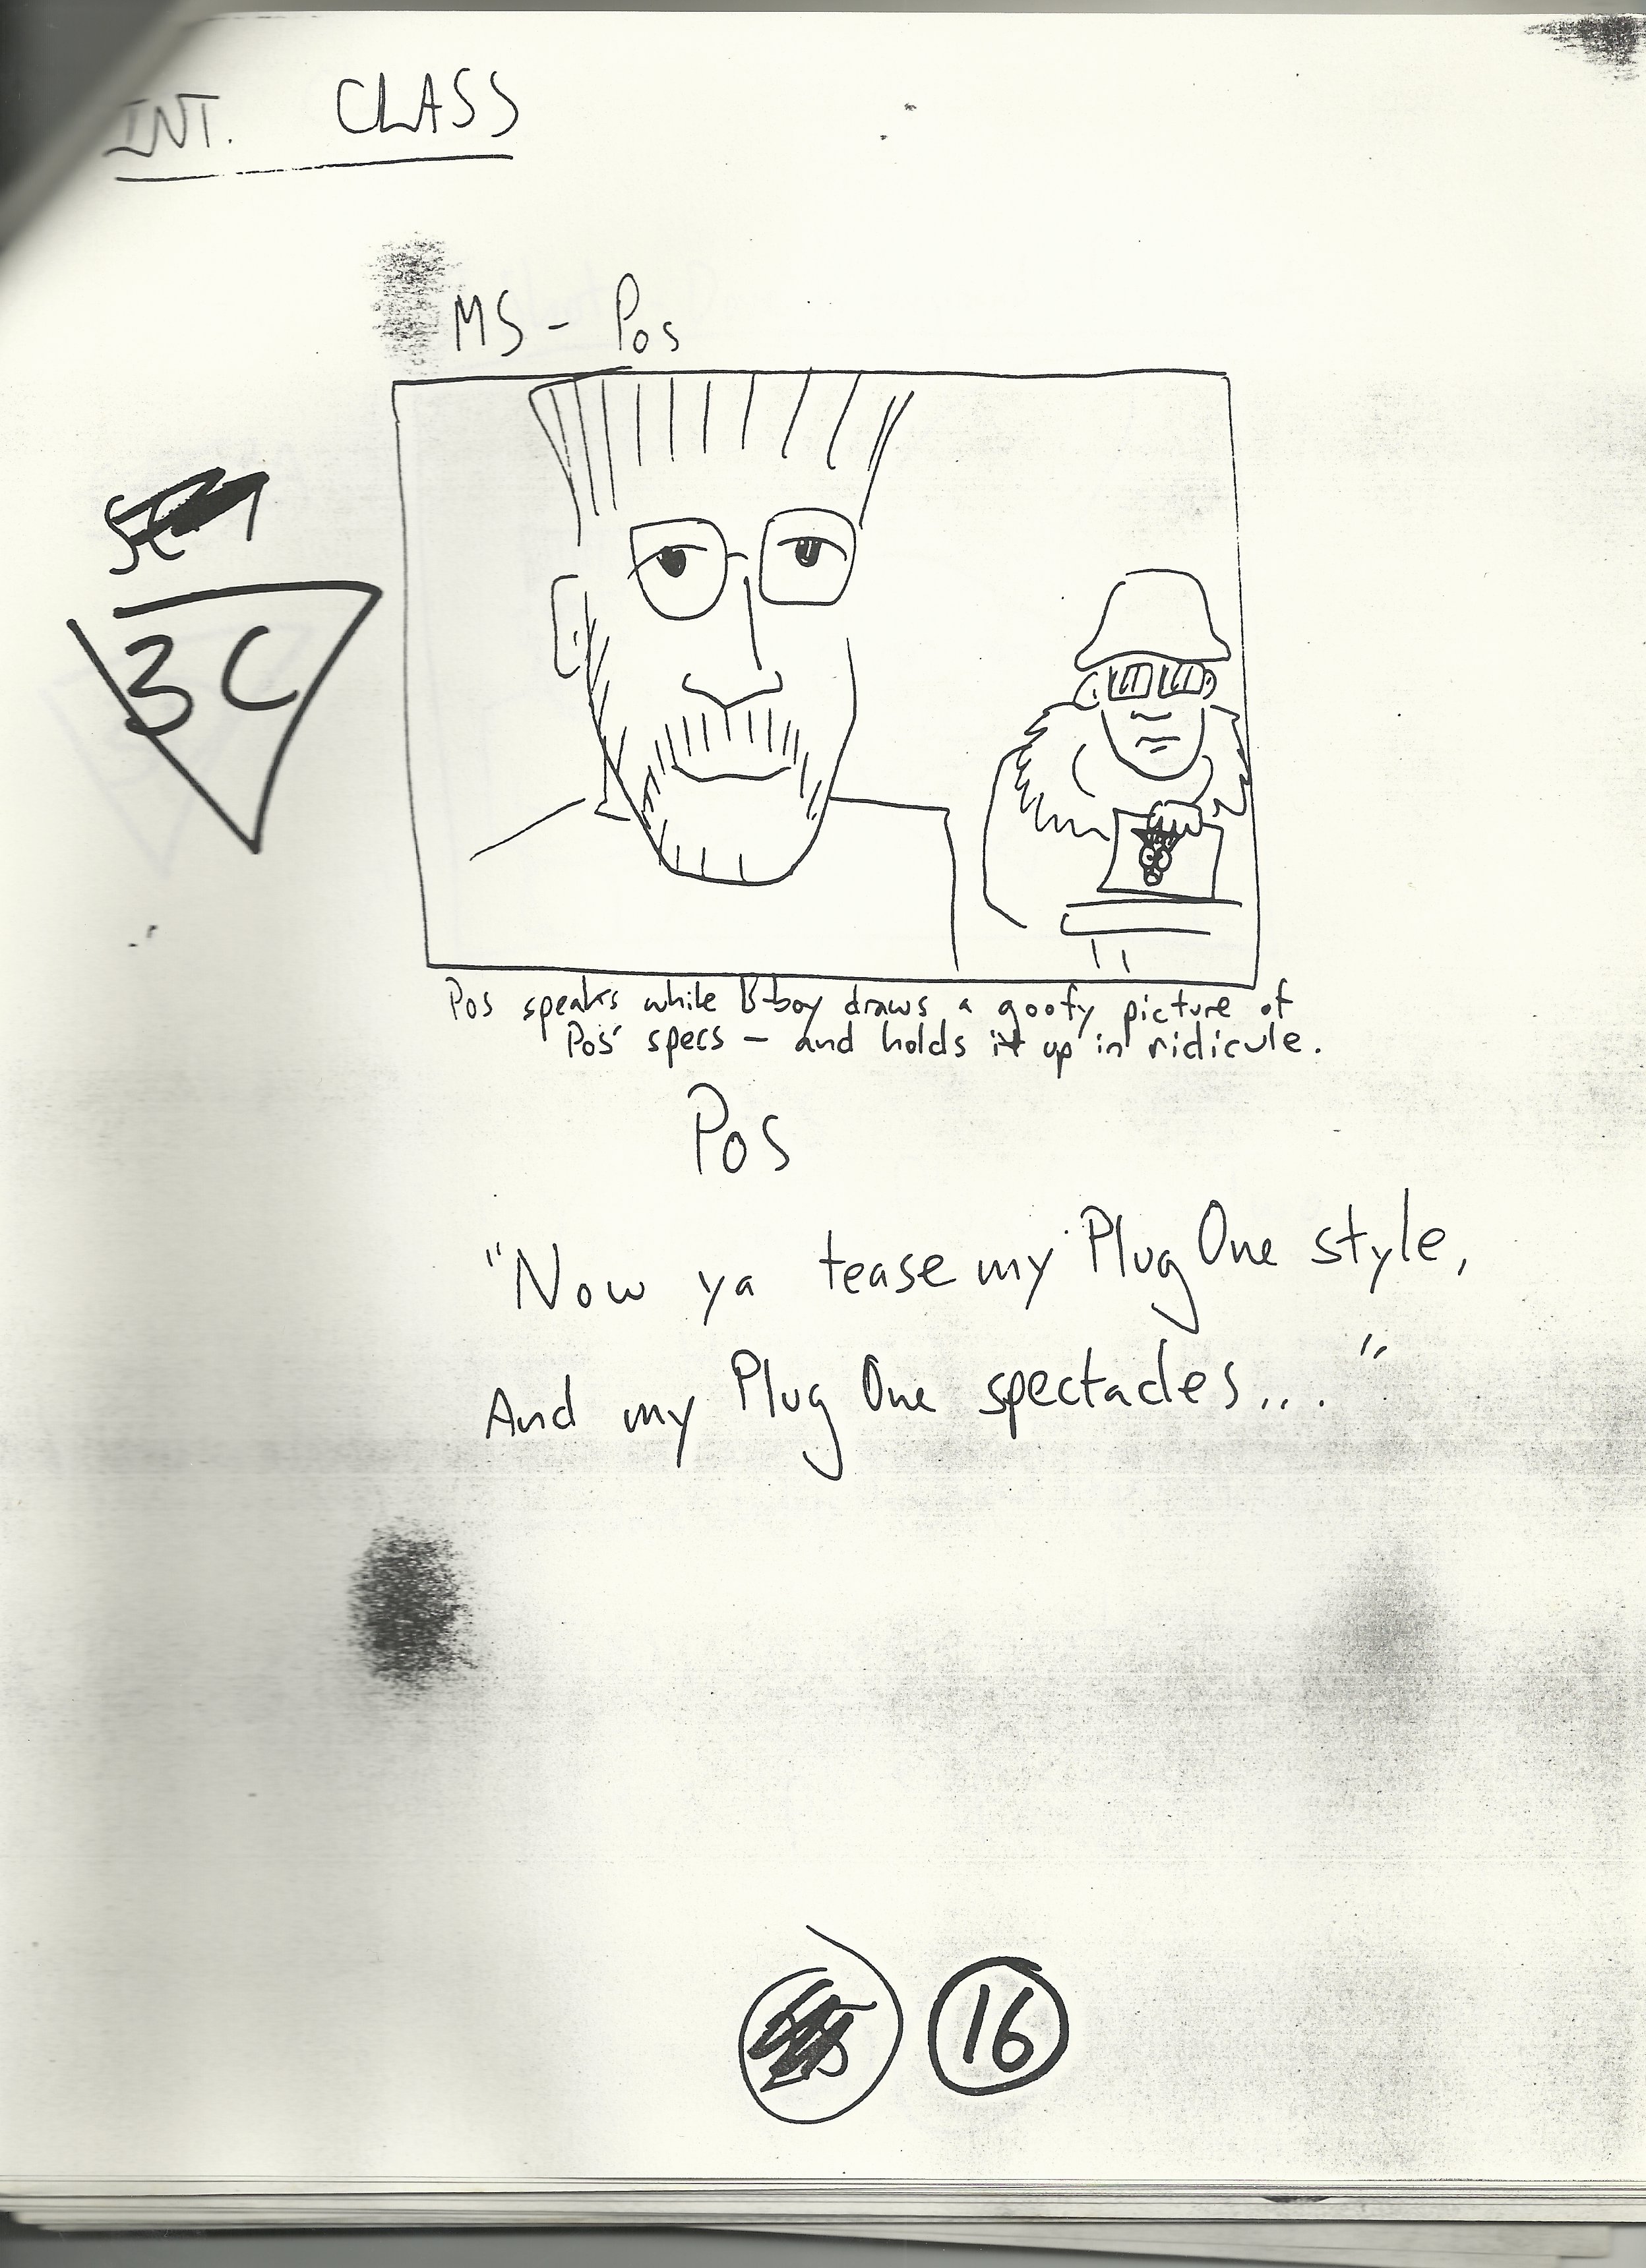 INT. CLASS
MS - Pos
3C
Pos speaks while B-boy draws a goofy picture of
Pos' specs - and holds it up in ridicule.
Pos
"Now ya tease my Plug One style,
And my Plug One spectacles...."
16